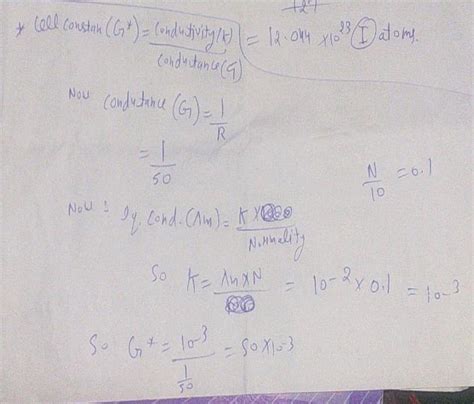 127
* Cell constan (G*) = Conductivity (K) / Conductance (G) = 12.044 × 10²³ I atoms.
Now Conductance (G) = 1/R
= 1/50
N/10 = 0.1
Now : Eq. Cond. (Λm) = K × / Normality
So K = Λm × N = 10⁻² × 0.1 = 10⁻³
So G* = 10⁻³ / 1/50 = 50 × 10⁻³